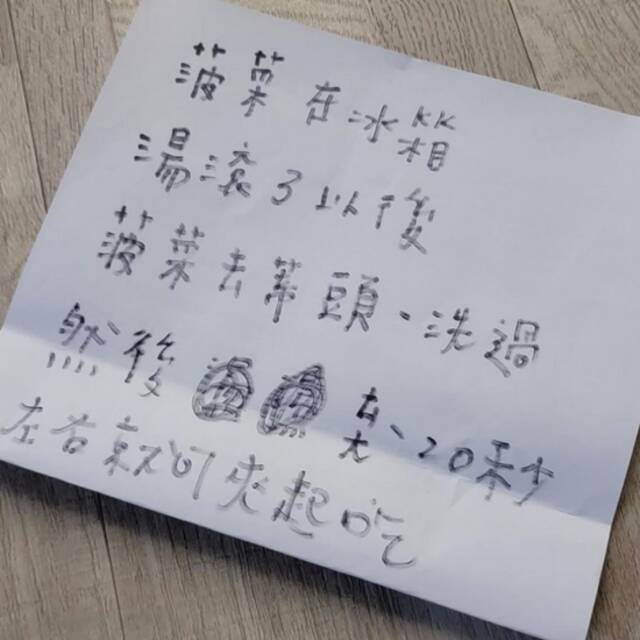 菠菜在冰箱
湯滾了以後
菠菜去蒂頭、洗過
然後 20秒
左右就可夾起吃